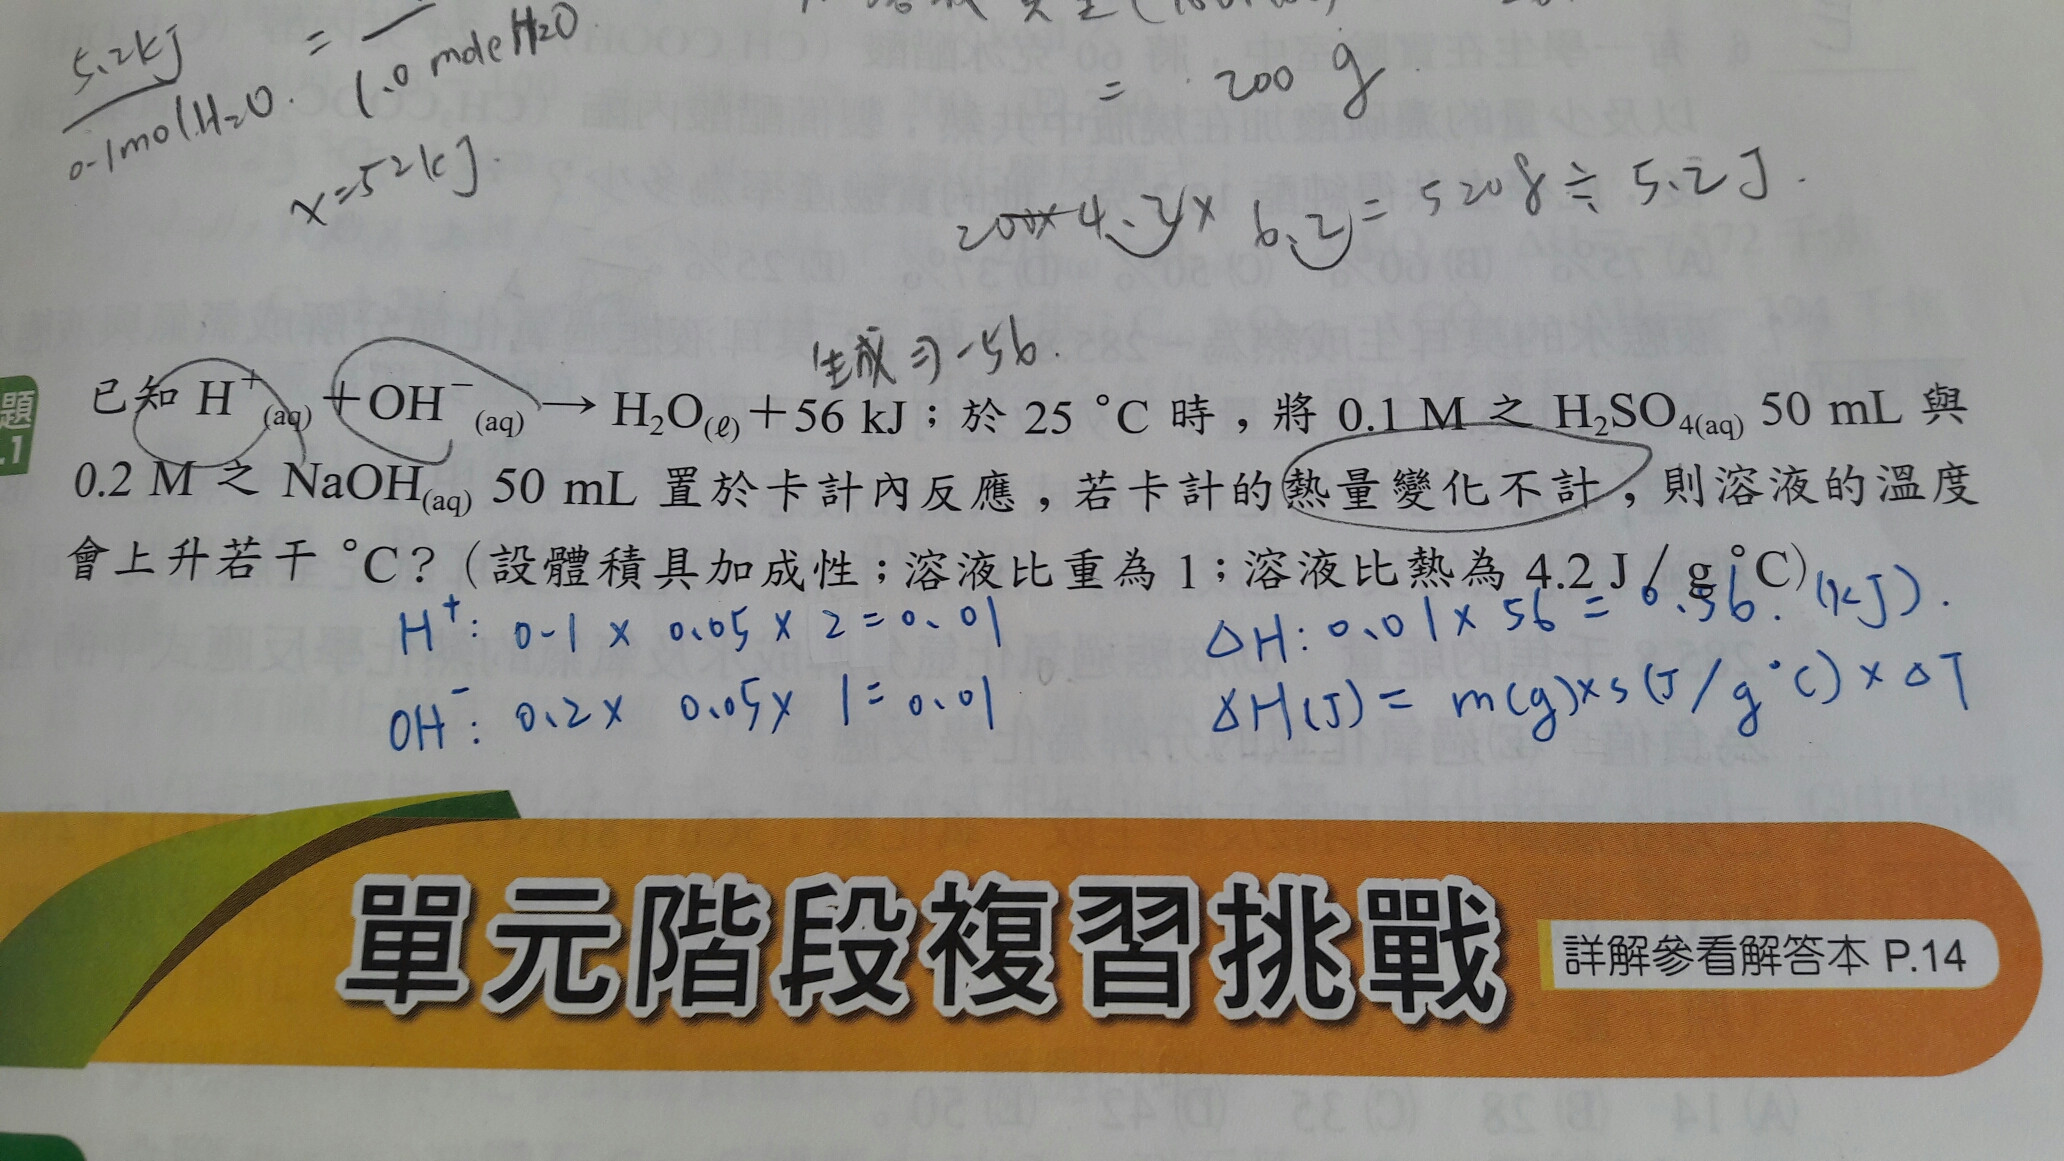 5.2kJ
0.1molH₂O
=
1.0 moleH₂O
x=52kJ.
= 200 g.
200×4.2× 6.2=5208≒5.2J.
生成⇒-56.
題
.1
已知 H⁺(aq)+OH⁻(aq)→H₂O(ℓ)+56 kJ；於 25 °C 時，將 0.1 M 之 H₂SO₄(aq) 50 mL 與
0.2 M 之 NaOH(aq) 50 mL 置於卡計內反應，若卡計的熱量變化不計，則溶液的溫度
會上升若干 °C？(設體積具加成性；溶液比重為 1；溶液比熱為 4.2 J / g °C)
H⁺: 0.1 × 0.05 × 2=0.01
ΔH: 0.01×56=0.56.(kJ).
OH⁻: 0.2× 0.05× 1=0.01
ΔH(J)= m(g)×s(J/g°C)×ΔT
單元階段複習挑戰
詳解參看解答本 P.14